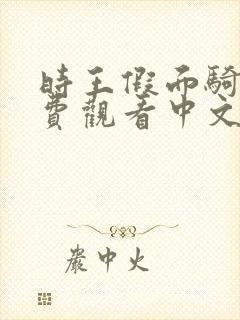 時王假面騎
費觀看中文
嚴中火